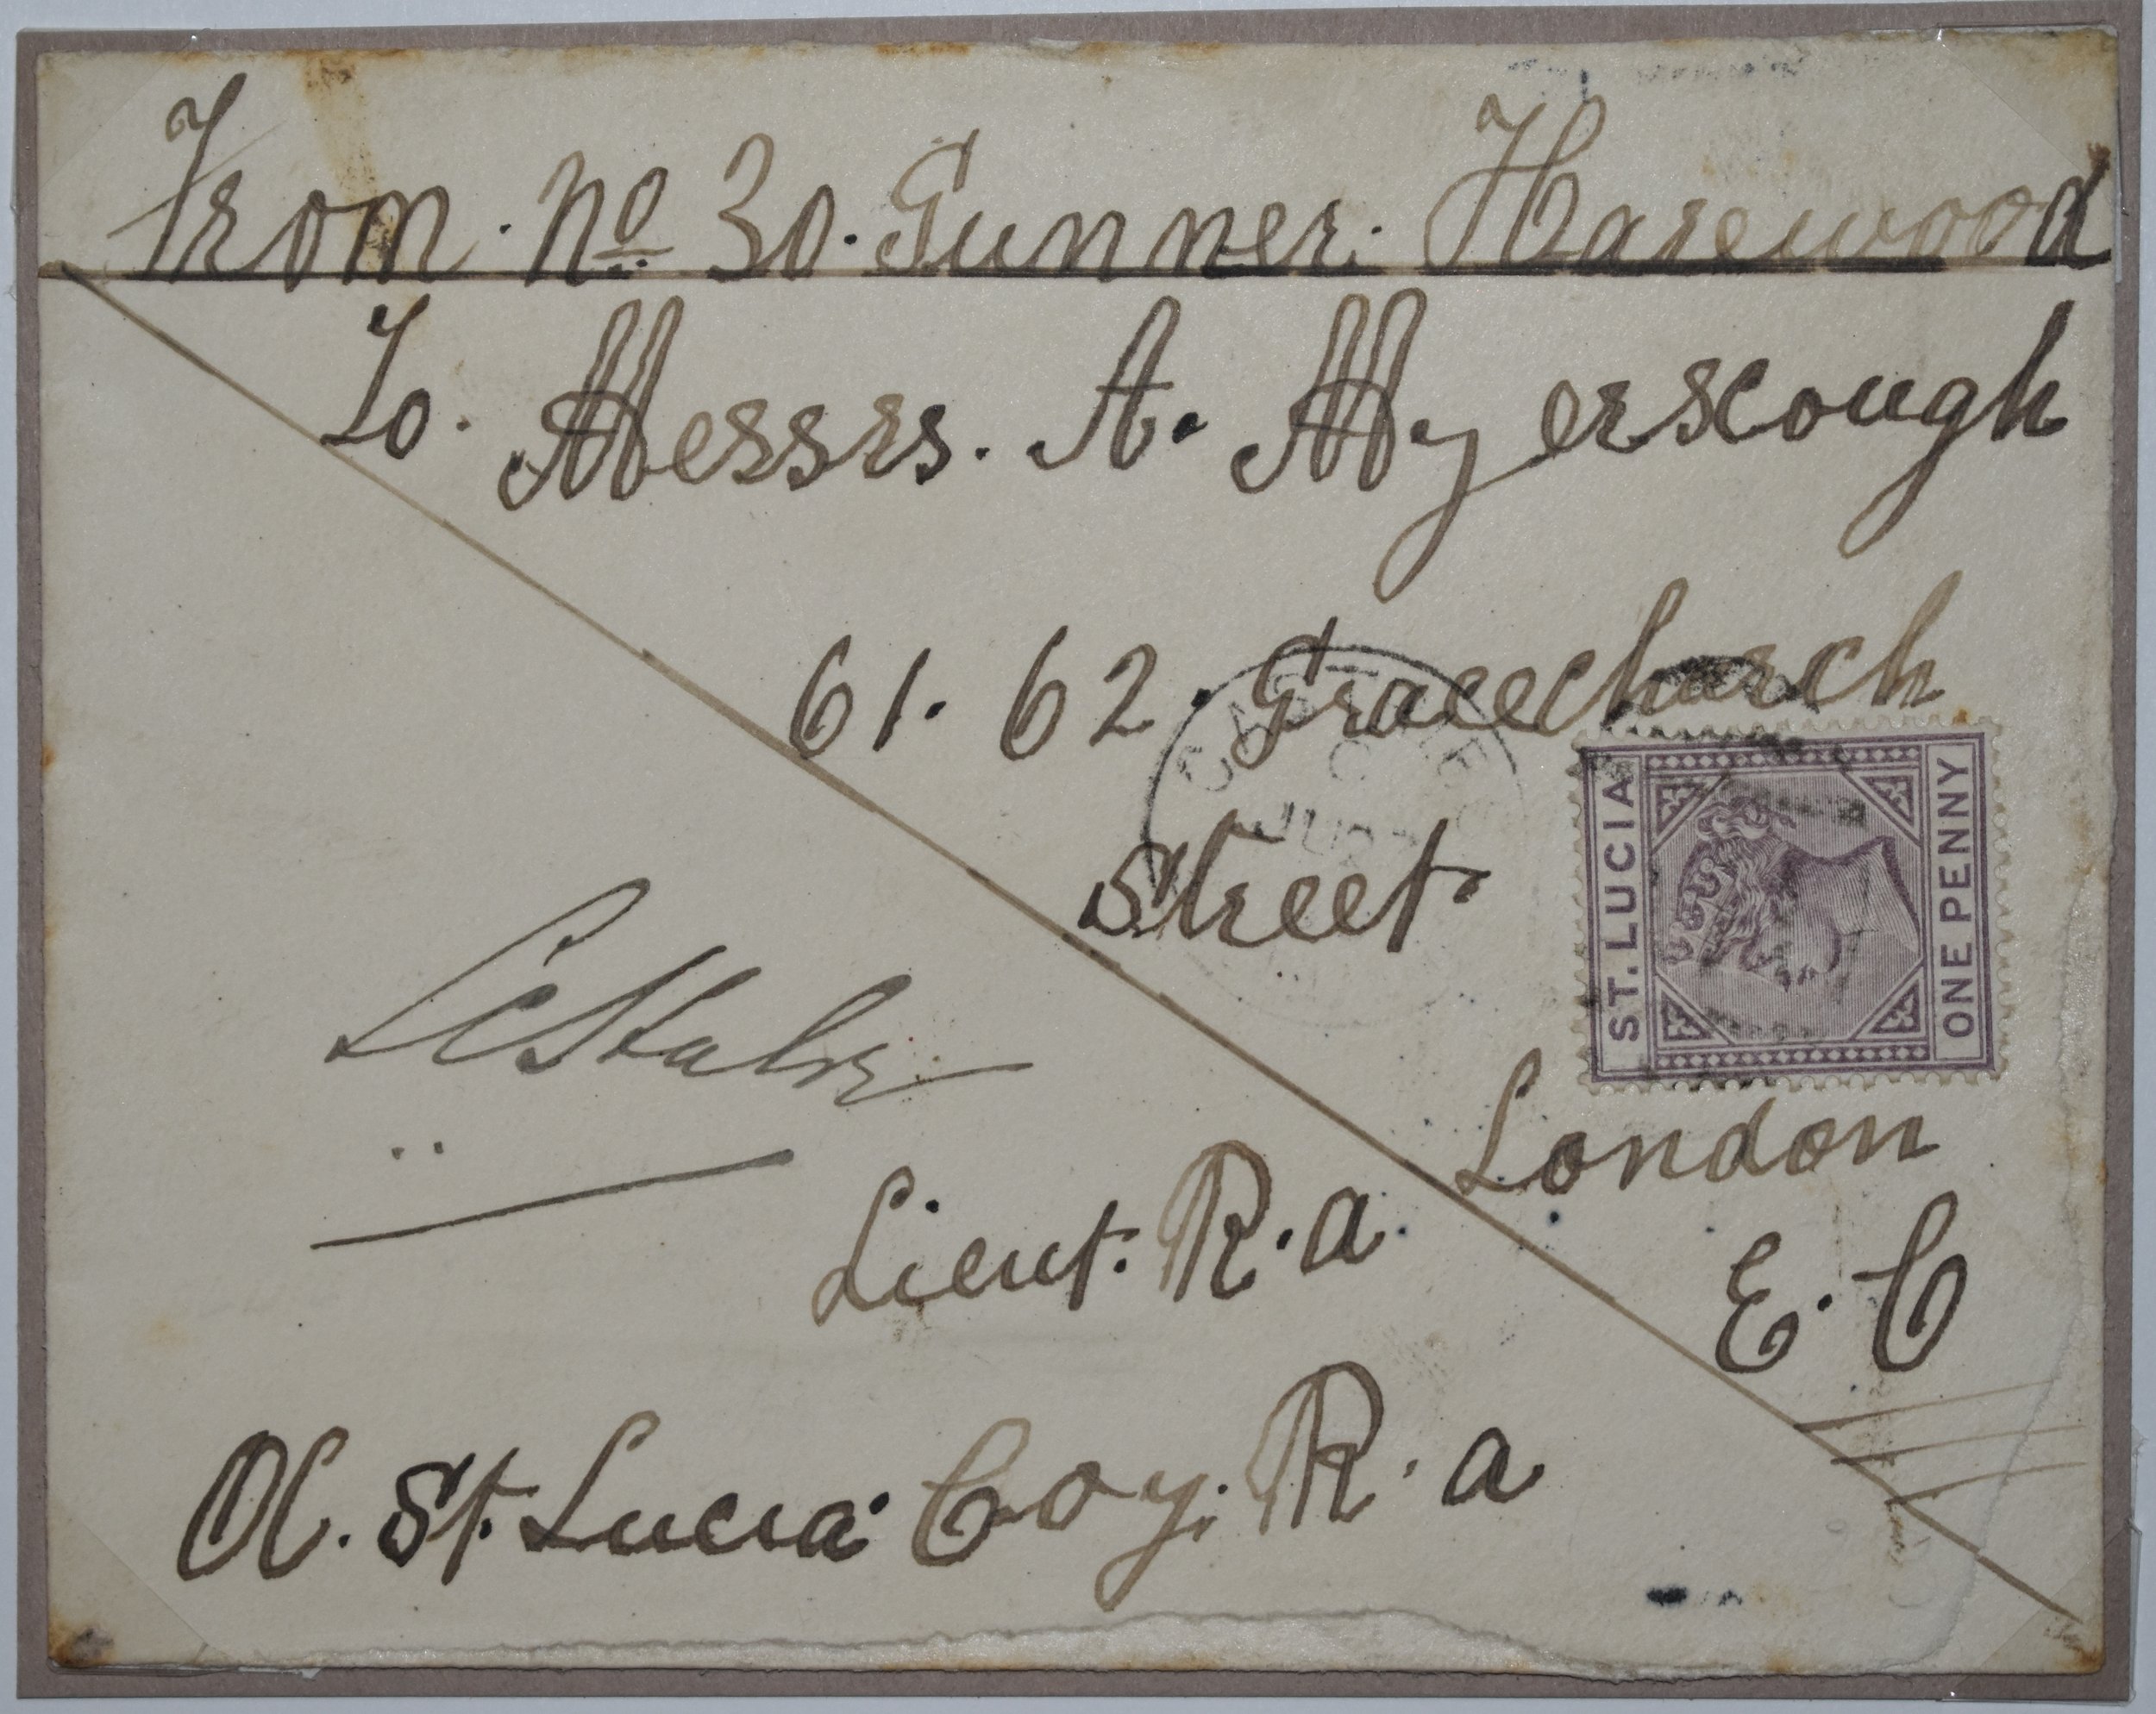 From. No 30. Gunner. Harewood
To. Messrs. A. Myerscough
61. 62. Gracechurch
Street
London
E. C
Lieut. R. a.
OC. St. Lucia Coy. R. a
ST. LUCIA
ONE PENNY
CASTRIES
C
JU